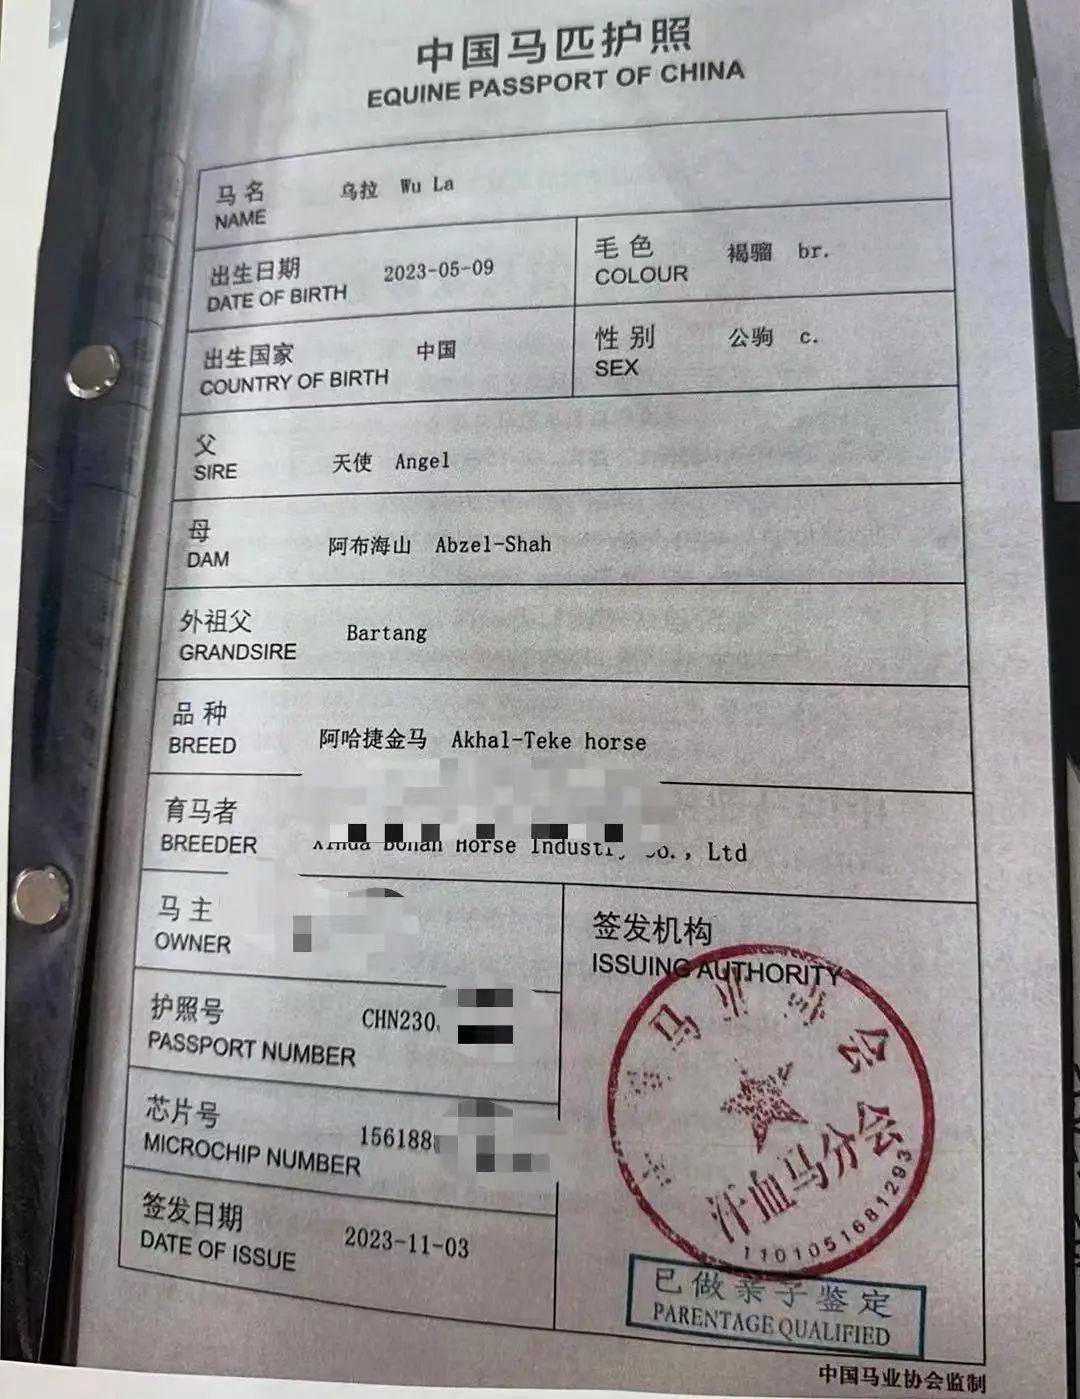 中国马匹护照
EQUINE PASSPORT OF CHINA
马名 乌拉 Wu La
NAME
出生日期 2023-05-09
DATE OF BIRTH
毛色 褐骝 br.
COLOUR
出生国家 中国
COUNTRY OF BIRTH
性别 公驹 c.
SEX
父 天使 Angel
SIRE
母 阿布海山 Abzel-Shah
DAM
外祖父 Bartang
GRANDSIRE
品种 阿哈捷金马 Akhal-Teke horse
BREED
育马者
BREEDER Horse Co., Ltd
马主
OWNER
签发机构
ISSUING AUTHORITY
护照号 CHN230
PASSPORT NUMBER
芯片号 156188
MICROCHIP NUMBER
签发日期 2023-11-03
DATE OF ISSUE
马业协会
汗血马分会
1101051681293
已做亲子鉴定
PARENTAGE QUALIFIED
中国马业协会监制